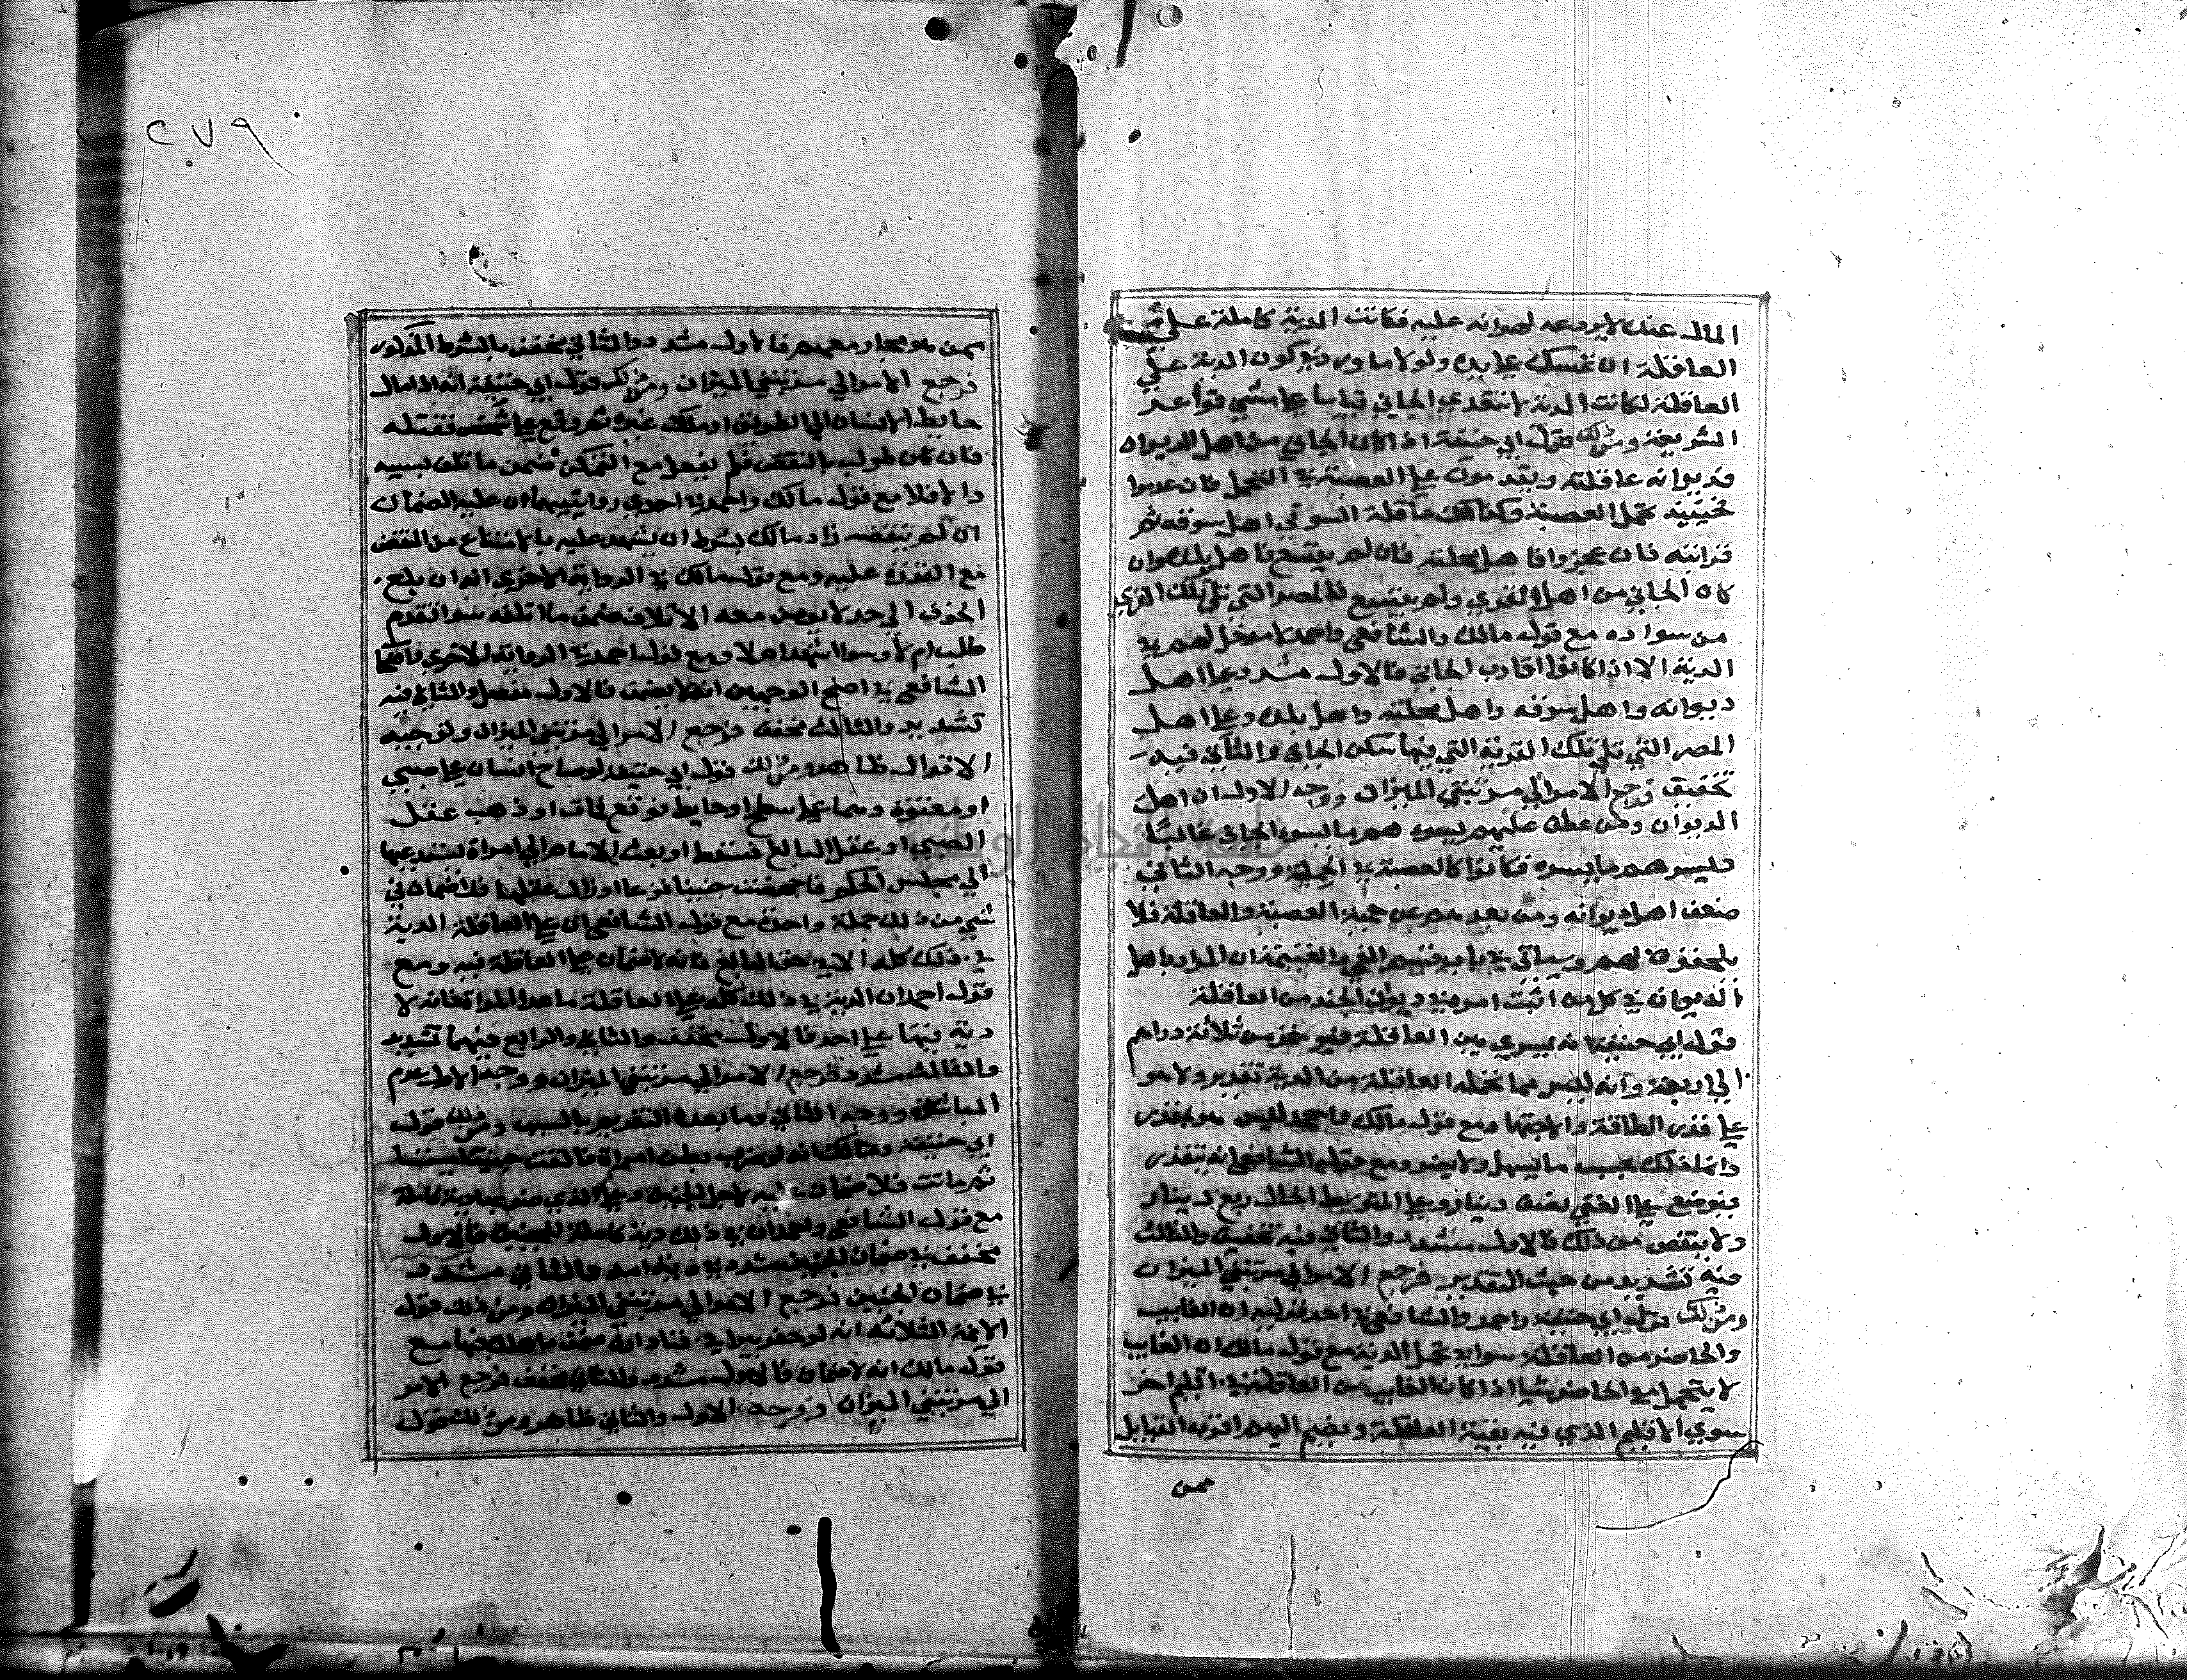 المال عنده لا يوجد لهوانه عليه فكانت الدية كاملة على
العاقلة ان تمسك على يده ولولا ما ورد في كون الدية على
العاقلة لكانت الدية لا تتعدى الجاني قياسا على مشي قواعد
الشريعة ومن ذلك قول ابي حنيفة اذا كان الجاني من اهل الديوان
فديوانه عاقلته ويقدمون على العصبة في التحمل فان عدموا
فحينئذ تحمل العصبة وكذلك عاقلة السوقي اهل سوقه ثم
قرابته فان عجزوا فاهل محلته فان لم يتسع فاهل بلدته وان
كان الجاني من اهل القرى ولم يتسع فالمصر التي تلي تلك القرى
من سواده مع قول مالك والشافعي واحمد لا مدخل لهم في
الدية الا اذا كانوا اقارب الجاني فالاول مشدد على اهل
ديوانه واهل سوقه واهل محلته واهل بلده وعلى اهل
المصر التي تلي تلك القرية التي فيها سكن الجاني والثاني فيه
تخفيف فرجع الامر الى مرتبتي الميزان ووجه الاول ان اهل
الديوان ومن عطف عليهم يسوءهم ما يسوء الجاني غالبا
ويسرهم ما يسره فكانوا كالعصبة في الحمية ووجه الثاني
ضعف اهل ديوانه ومن بعدهم عن حمية العصبة والعاقلة فلا
يلحقون بهم وسياتي في باب قسم الفي والغنيمة ان المراد باهل
الديوان في كل من اثبت اسمه في ديوان الجند من العاقلة
قول ابي حنيفة انه يسوي بين العاقلة فيوخذ من ثلاثة دراهم
الى اربعة وانه ليس فيما تحمله العاقلة من الدية تقدير ولا هو
على قدر الطاقة والاجتهاد مع قول مالك واحمد ليس هو بمقدر
وانما ذلك بحسب ما يسهل ولا يضر ومع قول الشافعي انه يتقدر
فيوضع على الغني نصف دينار وعلى المتوسط الحال ربع دينار
ولا ينقص من ذلك فالاول مشدد والثاني فيه تخفيف والثالث
فيه تشديد من حيث التقدير فرجع الامر الى مرتبتي الميزان
ومن ذلك قول ابي حنيفة واحمد والشافعي في احد قوليه ان الغايب
والحاضر من العاقلة سواء في تحمل الدية مع قول مالك ان الغايب
لا يتحمل مع الحاضر شيا اذا كان الغايب من العاقلة في اقليم اخر
سوى الاقليم الذي فيه بقية العاقلة ويضم اليهم اقرب القبايل
ممن
٢٧٩
ممن هو مجاور معهم فالاول مشدد والثاني مخفف بالشرط المذكور
فرجع الامر الى مرتبتي الميزان ومن ذلك قول ابي حنيفة انه اذا مال
حايط الانسان الى الطريق او ملك غيره ثم وقع على شخص فقتله
فان كان طولب بالنقض فلم يفعل مع التمكن ضمن ما تلف بسببه
والا فلا مع قول مالك واحمد في احدى روايتيهما ان عليه الضمان
ان لم ينقضه زاد مالك بشرط ان يشهد عليه بالامتناع من النقض
مع القدرة عليه ومع قول مالك في الرواية الاخرى انه ان بلغ
الخوف الى حد لا يومن معه الاتلاف ضمن ما اتلفه سوا تقدم
طلب ام لا وسوا اشهد ام لا ومع قول احمد في الرواية الاخرى
الشافعي في اصح الوجهين انه لا يضمن فالاول مفصل والثاني فيه
تشديد والثالث مخفف فرجع الامر الى مرتبتي الميزان وتوجيه
الاقوال ظاهر ومن ذلك قول ابي حنيفة لو صاح انسان على صبي
او معتوه وهما على سطح او حايط فوقع فمات او ذهب عقل
الصبي او عقل البالغ فسقط او بعث الامام الى امراة يستدعيها
الى مجلس الحكم فاجهضت جنينا فزعا او زال عقلها فلا ضمان في
شي من ذلك جملة واحدة مع قول الشافعي ان على العاقلة الدية
في ذلك كله الا في حق البالغ فانه لا ضمان على العاقلة فيه ومع
قول احمد ان الدية في ذلك كله على العاقلة ما عدا المراة فانه لا
دية فيها على احد فالاول مخفف والثاني والرابع فيهما تشديد
والثالث مشدد فرجع الامر الى مرتبتي الميزان ووجه الاول عدم
المباشرة ووجه الثاني وما بعده التقدير بالسبب ومن ذلك قول
ابي حنيفة ومالك انه لو ضرب بطن امراة فالقت جنينا ميتا
ثم ماتت فلا ضمان عليه لاجل الجنين وعلى الذي ضربها دية كاملة
مع قول الشافعي واحمد ان في ذلك دية كاملة للجنين فالاول
مخفف في ضمان الجنين مشدد في دية امه والثاني مشدد
في ضمان الجنين فرجع الامر الى مرتبتي الميزان ومن ذلك قول
الايمة الثلاثة انه لو حفر بيرا في فنا داره ضمن ما هلك فيها مع
قول مالك انه لا ضمان فالاول مشدد والثاني مخفف فرجع الامر
الى مرتبتي الميزان ووجه الاول والثاني ظاهر ومن ذلك قول